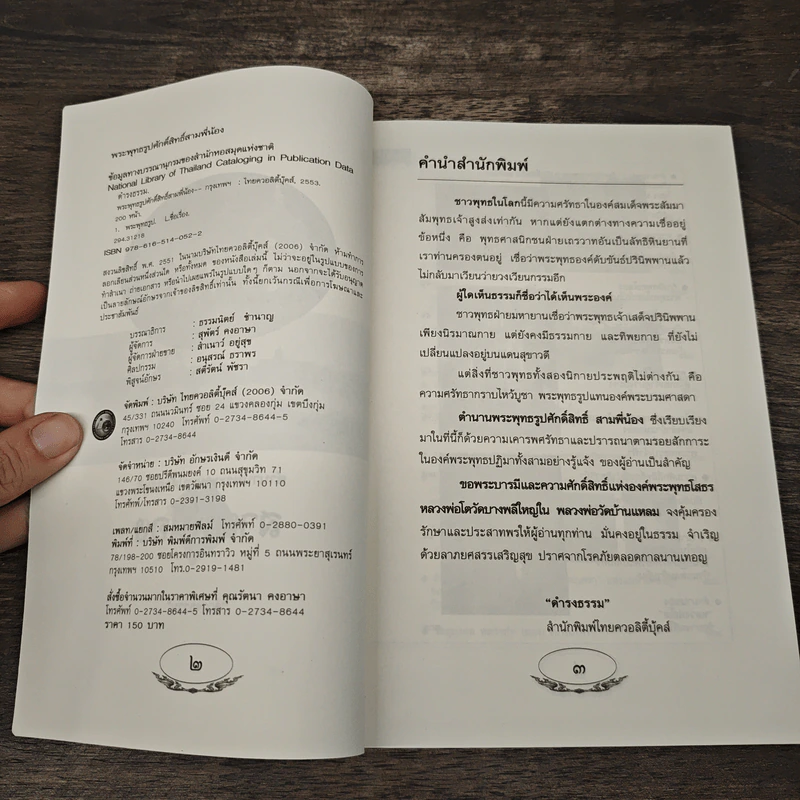 พระพุทธรูปศักดิ์สิทธิ์สามพี่น้อง
ข้อมูลทางบรรณานุกรมของสำนักหอสมุดแห่งชาติ
National Library of Thailand Cataloging in Publication Data
ดำรงธรรม.
พระพุทธรูปศักดิ์สิทธิ์สามพี่น้อง-- กรุงเทพฯ : ไทยควอลิตี้บุ๊คส์, 2553.
200 หน้า.
1. พระพุทธรูป. I.ชื่อเรื่อง.
294.31218
ISBN 978-616-514-052-2
สงวนลิขสิทธิ์ พ.ศ. 2551 ในนามบริษัทไทยควอลิตี้บุ๊คส์ (2006) จำกัด ห้ามทำการ
ลอกเลียนส่วนหนึ่งส่วนใด หรือทั้งหมด ของหนังสือเล่มนี้ ไม่ว่าจะอยู่ในรูปแบบของการ
ทำสำเนา ถ่ายเอกสาร หรือนำไปเผยแพร่ในรูปแบบใดๆ ก็ตาม นอกจากจะได้รับอนุญาต
เป็นลายลักษณ์อักษรจากเจ้าของลิขสิทธิ์เท่านั้น ทั้งนี้ยกเว้นกรณีเพื่อการโฆษณาและ
ประชาสัมพันธ์
บรรณาธิการ : ธรรมนิตย์ ชำนาญ
ผู้จัดการ : สุพัตร์ คงอาษา
ผู้จัดการฝ่ายขาย : สำเนาว์ อยู่สุข
ศิลปกรรม : อนุสรณ์ ธราพร
พิสูจน์อักษร : สตีรัตน์ พัชรา
จัดพิมพ์ : บริษัท ไทยควอลิตี้บุ๊คส์ (2006) จำกัด
45/331 ถนนนวมินทร์ ซอย 24 แขวงคลองกุ่ม เขตบึงกุ่ม
กรุงเทพฯ 10240 โทรศัพท์ 0-2734-8644-5
โทรสาร 0-2734-8644
จัดจำหน่าย : บริษัท อักษรเงินดี จำกัด
146/70 ซอยปรีดีพนมยงค์ 10 ถนนสุขุมวิท 71
แขวงพระโขนงเหนือ เขตวัฒนา กรุงเทพฯ 10110
โทรศัพท์/โทรสาร 0-2391-3198
เพลท/แยกสี : สมหมายฟิลม์ โทรศัพท์ 0-2880-0391
พิมพ์ที่ : บริษัท พิมพ์ดีการพิมพ์ จำกัด
78/198-200 ซอยโครงการอินทราวิว หมู่ที่ 5 ถนนพระยาสุเรนทร์
กรุงเทพฯ 10510 โทร.0-2919-1481
สั่งซื้อจำนวนมากในราคาพิเศษที่ คุณรัตนา คงอาษา
โทรศัพท์ 0-2734-8644-5 โทรสาร 0-2734-8644
ราคา 150 บาท
๒
คำนำสำนักพิมพ์
ชาวพุทธในโลกนี้มีความศรัทธาในองค์สมเด็จพระสัมมา
สัมพุทธเจ้าสูงส่งเท่ากัน หากแต่ยังแตกต่างทางความเชื่ออยู่
ข้อหนึ่ง คือ พุทธศาสนิกชนฝ่ายเถรวาทอันเป็นลัทธิหินยานที่
เราท่านครองตนอยู่ เชื่อว่าพระพุทธองค์ดับขันธ์ปรินิพพานแล้ว
ไม่กลับมาเวียนว่ายวงเวียนกรรมอีก
ผู้ใดเห็นธรรมก็ชื่อว่าได้เห็นพระองค์
ชาวพุทธฝ่ายมหายานเชื่อว่าพระพุทธเจ้าเสด็จปรินิพพาน
เพียงนิรมาณกาย แต่ยังคงมีธรรมกาย และทิพยกาย ที่ยังไม่
เปลี่ยนแปลงอยู่บนแดนสุขาวดี
แต่สิ่งที่ชาวพุทธทั้งสองนิกายประพฤติไม่ต่างกัน คือ
ความศรัทธากราบไหว้บูชา พระพุทธรูปแทนองค์พระบรมศาสดา
ตำนานพระพุทธรูปศักดิ์สิทธิ์ สามพี่น้อง ซึ่งเรียบเรียง
มาในที่นี้ก็ด้วยความเคารพศรัทธาและปรารถนาตามรอยสักการะ
ในองค์พระพุทธปฏิมาทั้งสามอย่างรู้แจ้ง ของผู้อ่านเป็นสำคัญ
ขอพระบารมีและความศักดิ์สิทธิ์แห่งองค์พระพุทธโสธร
หลวงพ่อโตวัดบางพลีใหญ่ใน หลวงพ่อวัดบ้านแหลม จงคุ้มครอง
รักษาและประสาทพรให้ผู้อ่านทุกท่าน มั่นคงอยู่ในธรรม จำเริญ
ด้วยลาภยศสรรเสริญสุข ปราศจากโรคภัยตลอดกาลนานเทอญ
“ดำรงธรรม”
สำนักพิมพ์ไทยควอลิตี้บุ๊คส์
๓